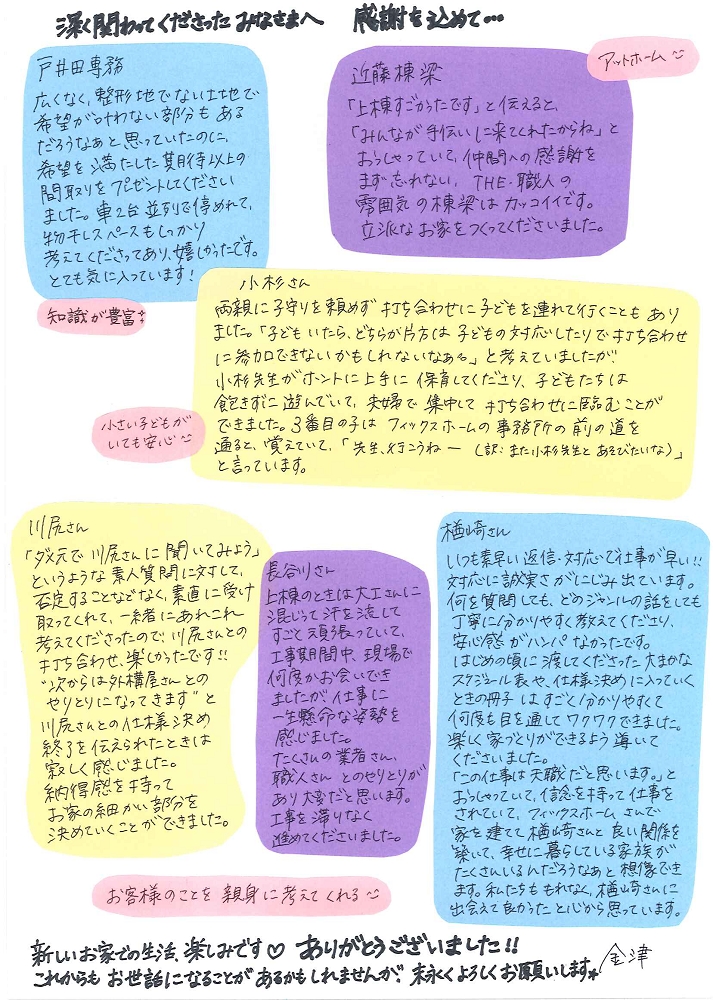 深く関わってくださったみなさまへ 感謝を込めて…
戸井田専務
広くなく、整形地でない土地で
希望が叶わない部分もある
だろうなあと思っていたのに、
希望を満たした期待以上の
間取りをプレゼントしてください
ました。車2台並列で停めれて、
物干しスペースもしっかり
考えてくださってあり、嬉しかったです。
とても気に入っています!
知識が豊富
アットホーム
近藤棟梁
「上棟すごかったです」と伝えると、
「みんなが手伝いに来てくれたからね」と
おっしゃっていて、仲間への感謝を
まず忘れない、THE・職人の
雰囲気の棟梁はカッコイイです。
立派なお家をつくってくださいました。
小杉さん
両親に子守りを頼めず打ち合わせに子どもを連れて行くこともあり
ました。「子どもいたら、どちらか片方は子どもの対応したりで打ち合わせ
に参加できないかもしれないなぁ〜」と考えていましたが、
小杉先生がホントに上手に保育してくださり、子どもたちは
飽きずに遊んでいて、夫婦で集中して打ち合わせに臨むことが
できました。3番目の子はフィックスホームの事務所の前の道を
通ると、覚えていて、「先生、行こうねー(訳:また小杉先生とあそびたいな)」
と言っています。
小さい子どもが
いても安心
川尻さん
「ダメ元で川尻さんに聞いてみよう」
というような素人質問に対して、
否定することなどなく、素直に受け
取ってくれて、一緒にあれこれ
考えてくださったので、川尻さんとの
打ち合わせ、楽しかったです!!
"次からは外構屋さんとの
やりとりになってきます"と
川尻さんとの仕様決め
終了を伝えられたときは
寂しく感じました。
納得感を持って
お家の細かい部分を
決めていくことができました。
長谷川さん
上棟のときは大工さんに
混じって汗を流して
すごく頑張っていて、
工事期間中、現場で
何度かお会いでき
ましたが、仕事に
一生懸命な姿勢を
感じました。
たくさんの業者さん、
職人さんとのやりとりが
あり大変だと思います。
工事を滞りなく
進めてくださいました。
楢崎さん
いつも素早い返信・対応で仕事が早い!!
対応に誠実さがにじみ出ています。
何を質問しても、どのジャンルの話をしても
丁寧に分かりやすく教えてくださり、
安心感がハンパなかったです。
はじめの頃に渡してくださった大まかな
スケジュール表や、仕様決めに入っていく
ときの冊子はすごく分かりやすくて
何度も目を通してワクワクできました。
楽しく家づくりができるよう導いて
くださいました。
「この仕事は天職だと思います。」と
おっしゃっていて、信念を持って仕事を
されていて、フィックスホームさんで
家を建てて楢崎さんと良い関係を
築いて、幸せに暮らしている家族が
たくさんいるんだろうなあと想像でき
ます。私たちももれなく、楢崎さんに
出会えて良かったと心から思っています。
お客様のことを親身に考えてくれる
新しいお家での生活、楽しみです♡ ありがとうございました!!
これからもお世話になることがあるかもしれませんが、末永くよろしくお願いします。
金津